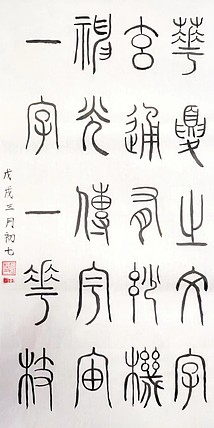 華夏之文字
玄通有妙機
神光傳宇宙
一字一華枝
戊戌三月初七